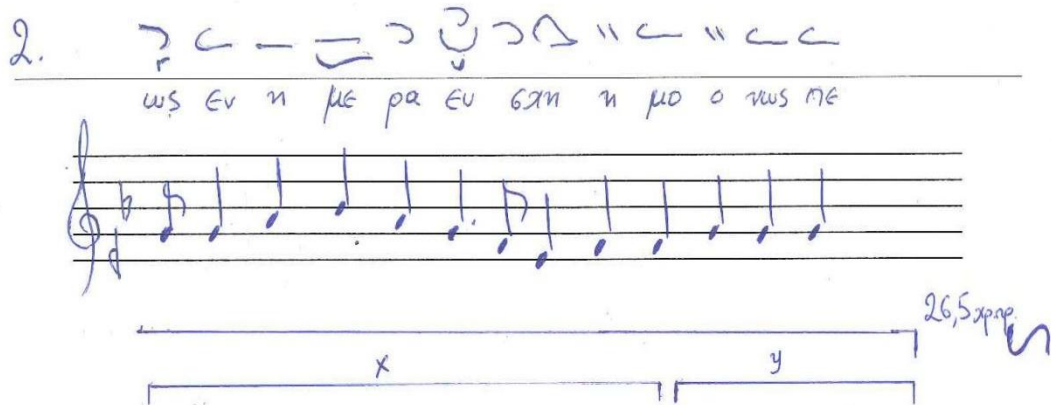 2.
ως εν η με ρα ευ σχη η μο ο νως πε
26,5 χρ.πρ.
x y